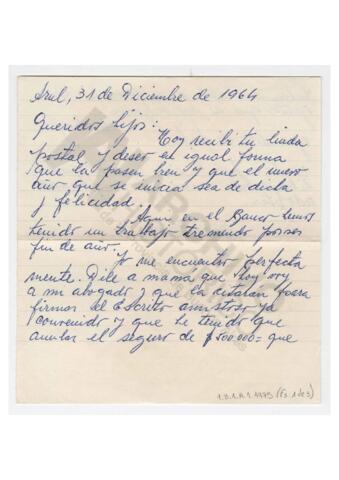 Azul, 31 de Diciembre de 1964
Queridos hijos:
Hoy recibí tu linda
postal y deseo en igual forma
que la pasen bien y que el nuevo
año que se inicia sea de dicha
y felicidad.
Aquí en el Banco hemos
tenido un trabajo tremendo por ser
fin de año.
Yo me encuentro perfecta
mente. Dile a mamá que hoy voy
a mi abogado y que la citarán para
firmar el Escrito amistoso ya
convenido y que he tenido que
anular el seguro de $ 500.000= que
1.B.1.A.1.4473 (Fs. 1 de 3)